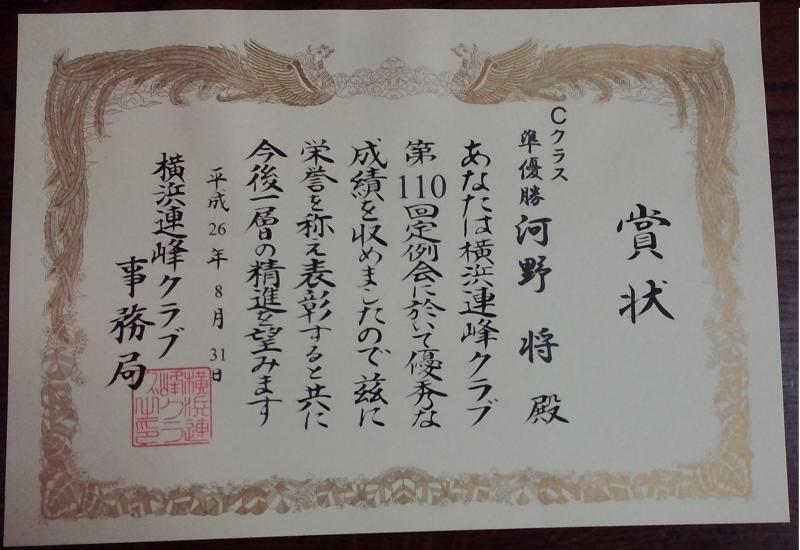 賞状
Cクラス
準優勝 河野 将 殿
あなたは横浜連峰クラブ
第110回定例会に於いて優秀な
成績を収めましたので茲に
栄誉を称え表彰すると共に
今後一層の精進を望みます
平成26年8月31日
横浜連峰クラブ
事務局
横浜連
峰クラ